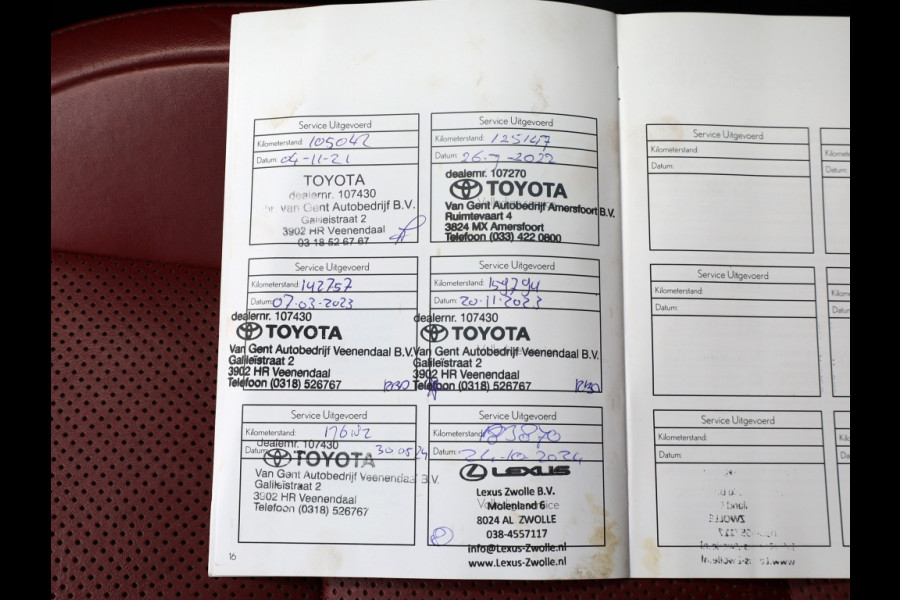 Service Uitgevoerd
Kilometerstand: 105042
Datum: 04-11-21
TOYOTA
dealernr. 107430
van Gent Autobedrijf B.V.
Galileistraat 2
3902 HR Veenendaal
03 18 52 67 67
Service Uitgevoerd
Kilometerstand: 125147
Datum: 26-7-2022
dealernr. 107270
TOYOTA
Van Gent Autobedrijf Amersfoort B.V.
Ruimtevaart 4
3824 MX Amersfoort
Telefoon (033) 422 0800
Service Uitgevoerd
Kilometerstand: 142757
Datum: 07-03-2023
dealernr. 107430
TOYOTA
Van Gent Autobedrijf Veenendaal B.V.
Galileïstraat 2
3902 HR Veenendaal
Telefoon (0318) 526767
Service Uitgevoerd
Kilometerstand: 159794
Datum: 20-11-2023
dealernr. 107430
TOYOTA
Van Gent Autobedrijf Veenendaal B.V.
Galileïstraat 2
3902 HR Veenendaal
Telefoon (0318) 526767
Service Uitgevoerd
Kilometerstand:
Datum: 30 05 24
dealernr. 107430
TOYOTA
Van Gent Autobedrijf Veenendaal B.V.
Galileïstraat 2
3902 HR Veenendaal
Telefoon (0318) 526767
Service Uitgevoerd
Kilometerstand: 183870
Datum: 24-10-2024
LEXUS
Lexus Zwolle B.V.
Molenland 6
8024 AL ZWOLLE
038-4557117
info@Lexus-Zwolle.nl
www.Lexus-Zwolle.nl
16
Service Uitgevoerd
Kilometerstand:
Datum:
Service Uitgevoerd
Kilometerstand:
Datum:
Service Uitgevoerd
Kilometerstand:
Datum: